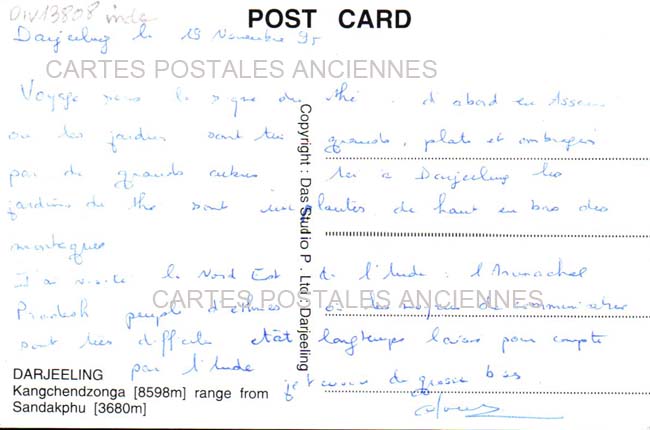 Div13808 inde
POST CARD
Darjeeling le 19 Novembre 95
CARTES POSTALES ANCIENNES
Voyage sous le signe du thé. d'abord en Assam
ou les jardins sont très grands, plats et ombragés
par de grands arbres Ici à Darjeeling les
jardins de thé sont implantés de haut en bas des
montagnes
J'ai visité le Nord Est de l'Inde : l'Arunachal
Pradesh peuplé d'ethnies où les moyens de communication
CARTES POSTALES ANCIENNES
sont très difficiles état longtemps laissé pour compte
par l'Inde
je t'envoie de grosses bises
Copyright : Das Studio P . Ltd.: Darjeeling
DARJEELING
Kangchendzonga [8598m] range from
Sandakphu [3680m]